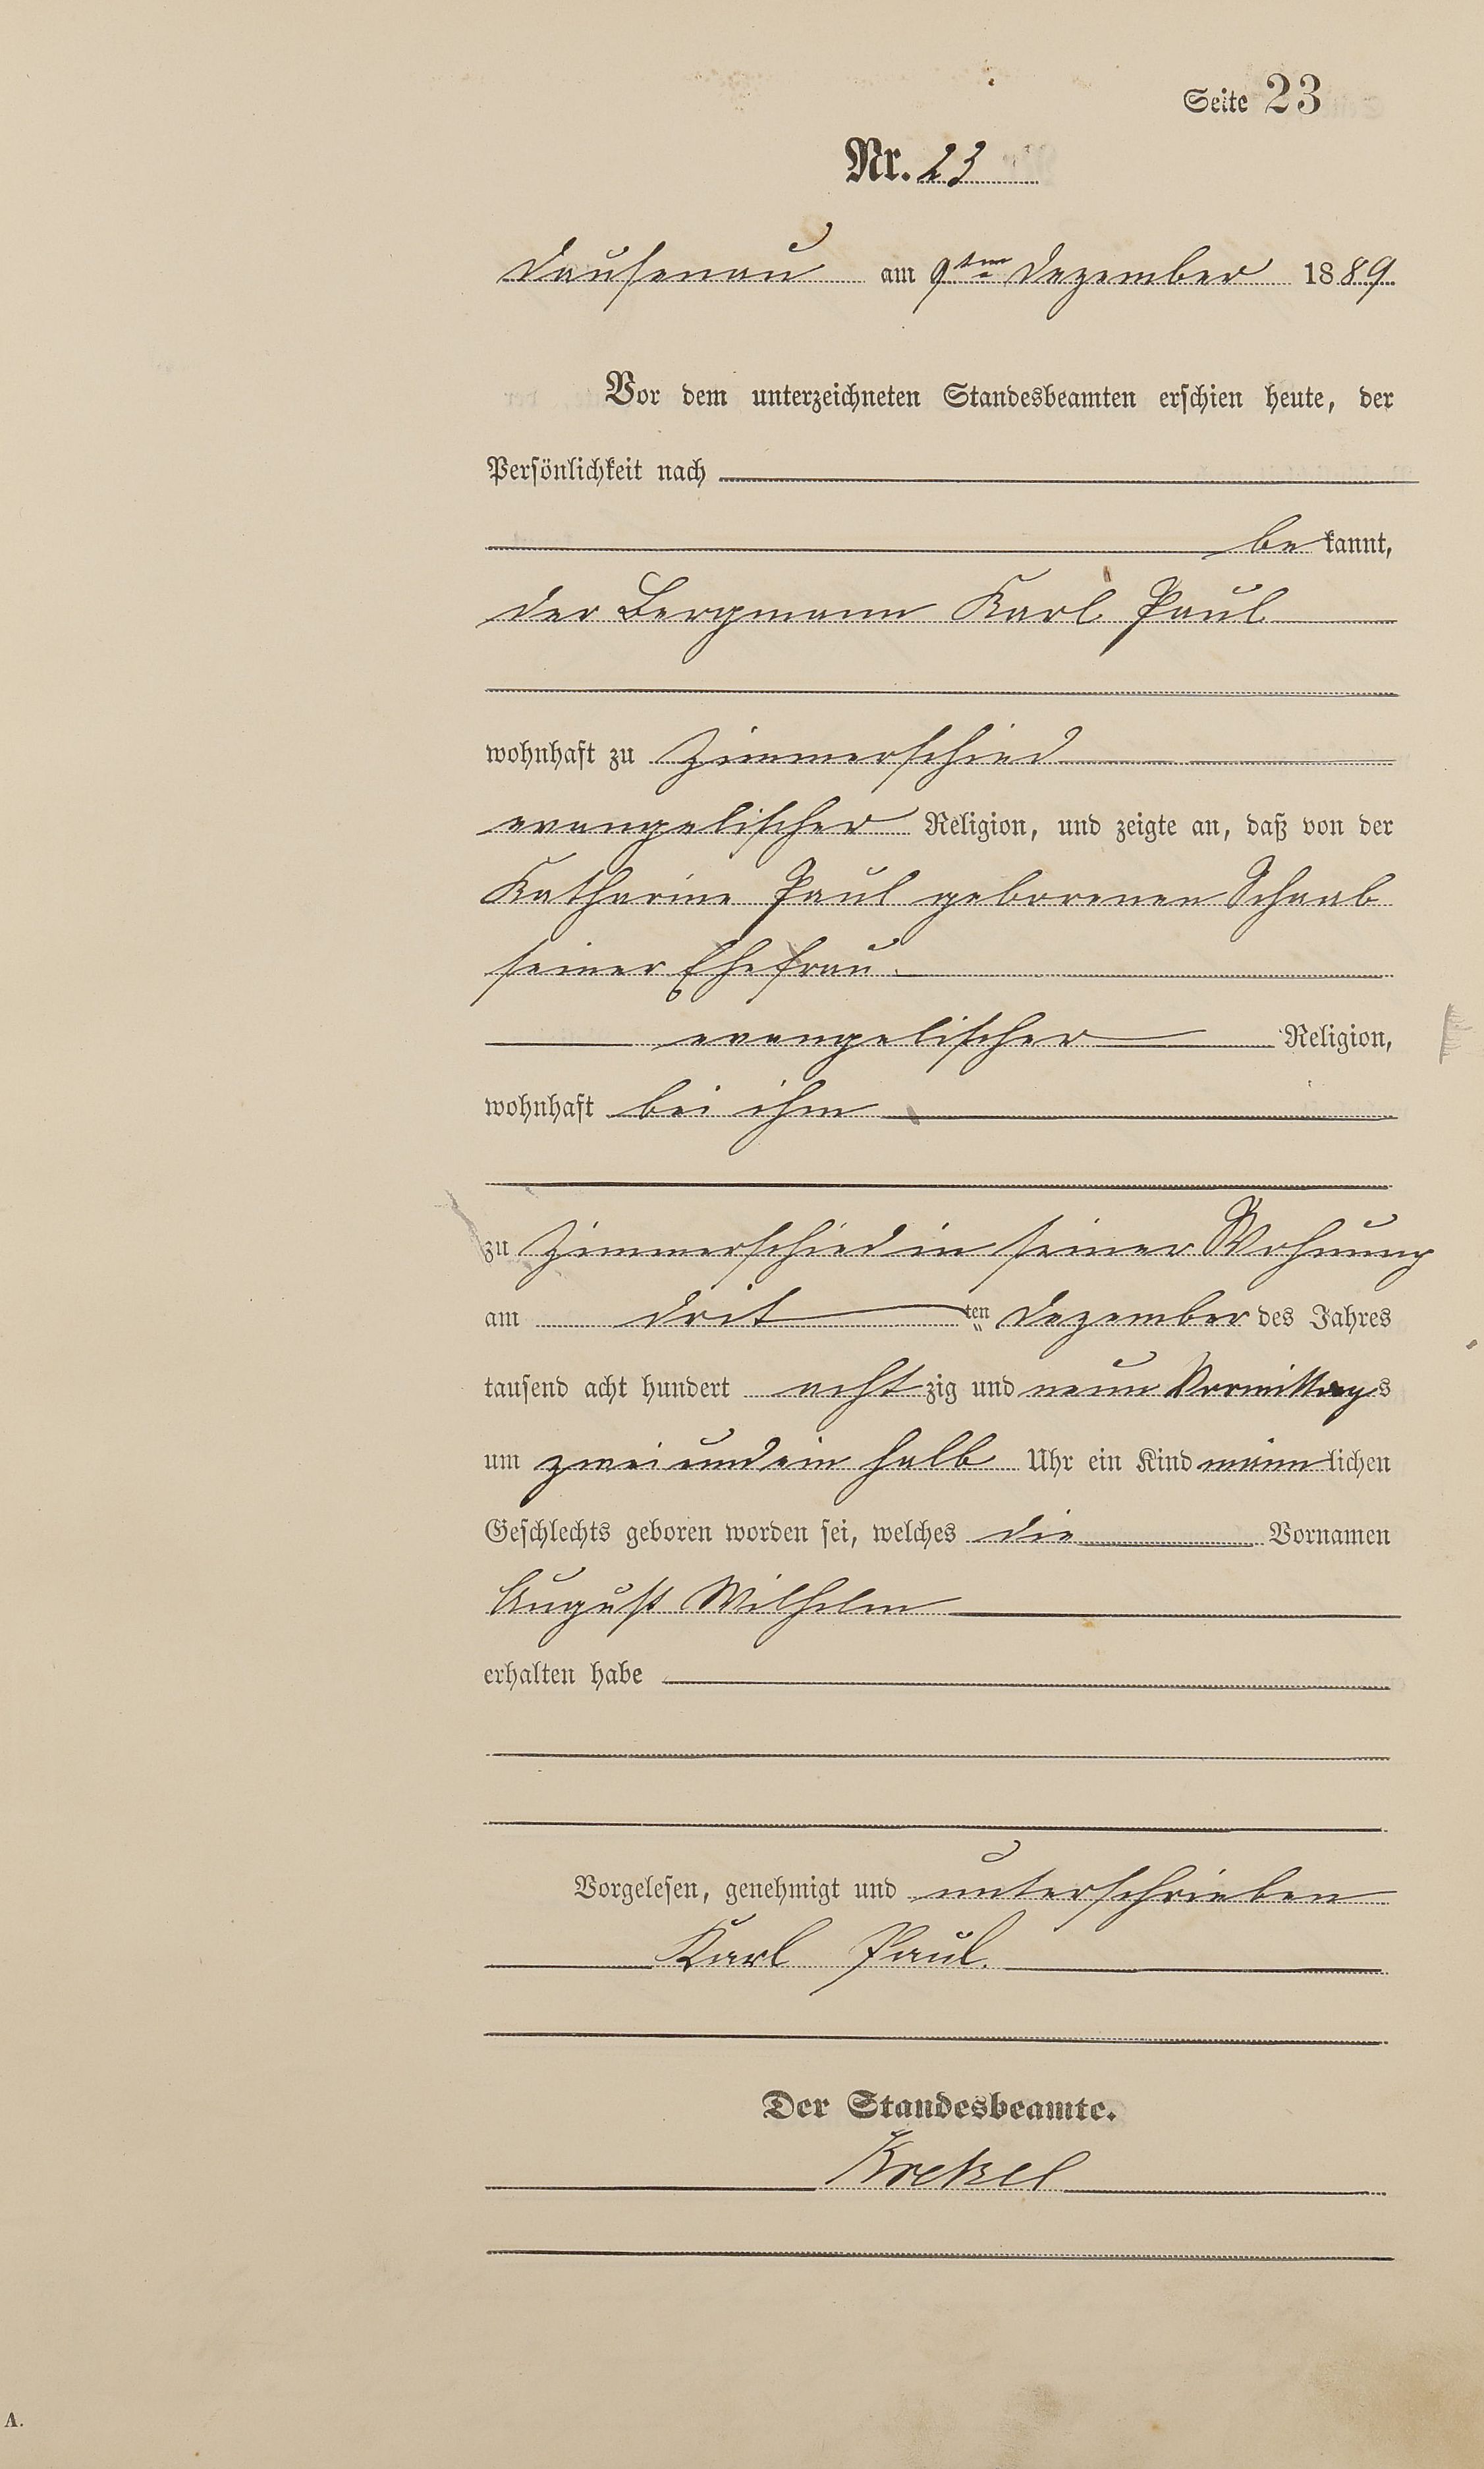 Seite 23
Nr. 23
Dausenau am 9ten Dezember 1889
Vor dem unterzeichneten Standesbeamten erschien heute, der
Persönlichkeit nach
bekannt,
der Bergmann Karl Paul
wohnhaft zu Zimmerschied
evangelischer Religion, und zeigte an, daß von der
Katharine Paul geborenen Schaab
seiner Ehefrau
evangelischer Religion,
wohnhaft bei ihm
zu Zimmerschied in seiner Wohnung
am dritten Dezember des Jahres
tausend acht hundert achtzig und neun Vormittags
um zwei und ein halb Uhr ein Kind männlichen
Geschlechts geboren worden sei, welches die Vornamen
August Wilhelm
erhalten habe
Vorgelesen, genehmigt und unterschrieben
Karl Paul.
Der Standesbeamte.
Krekel
A.